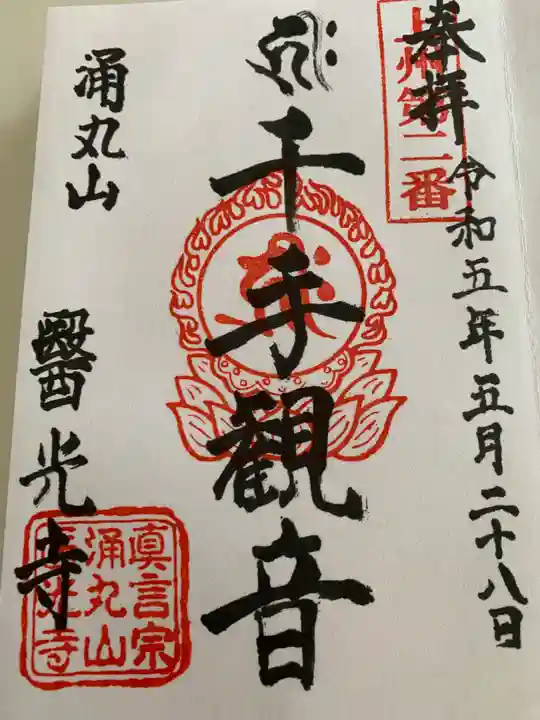 奉拝
令和五年五月二十八日
州第二番
千手観音
涌丸山
醫光寺
真言宗
涌丸山
寺